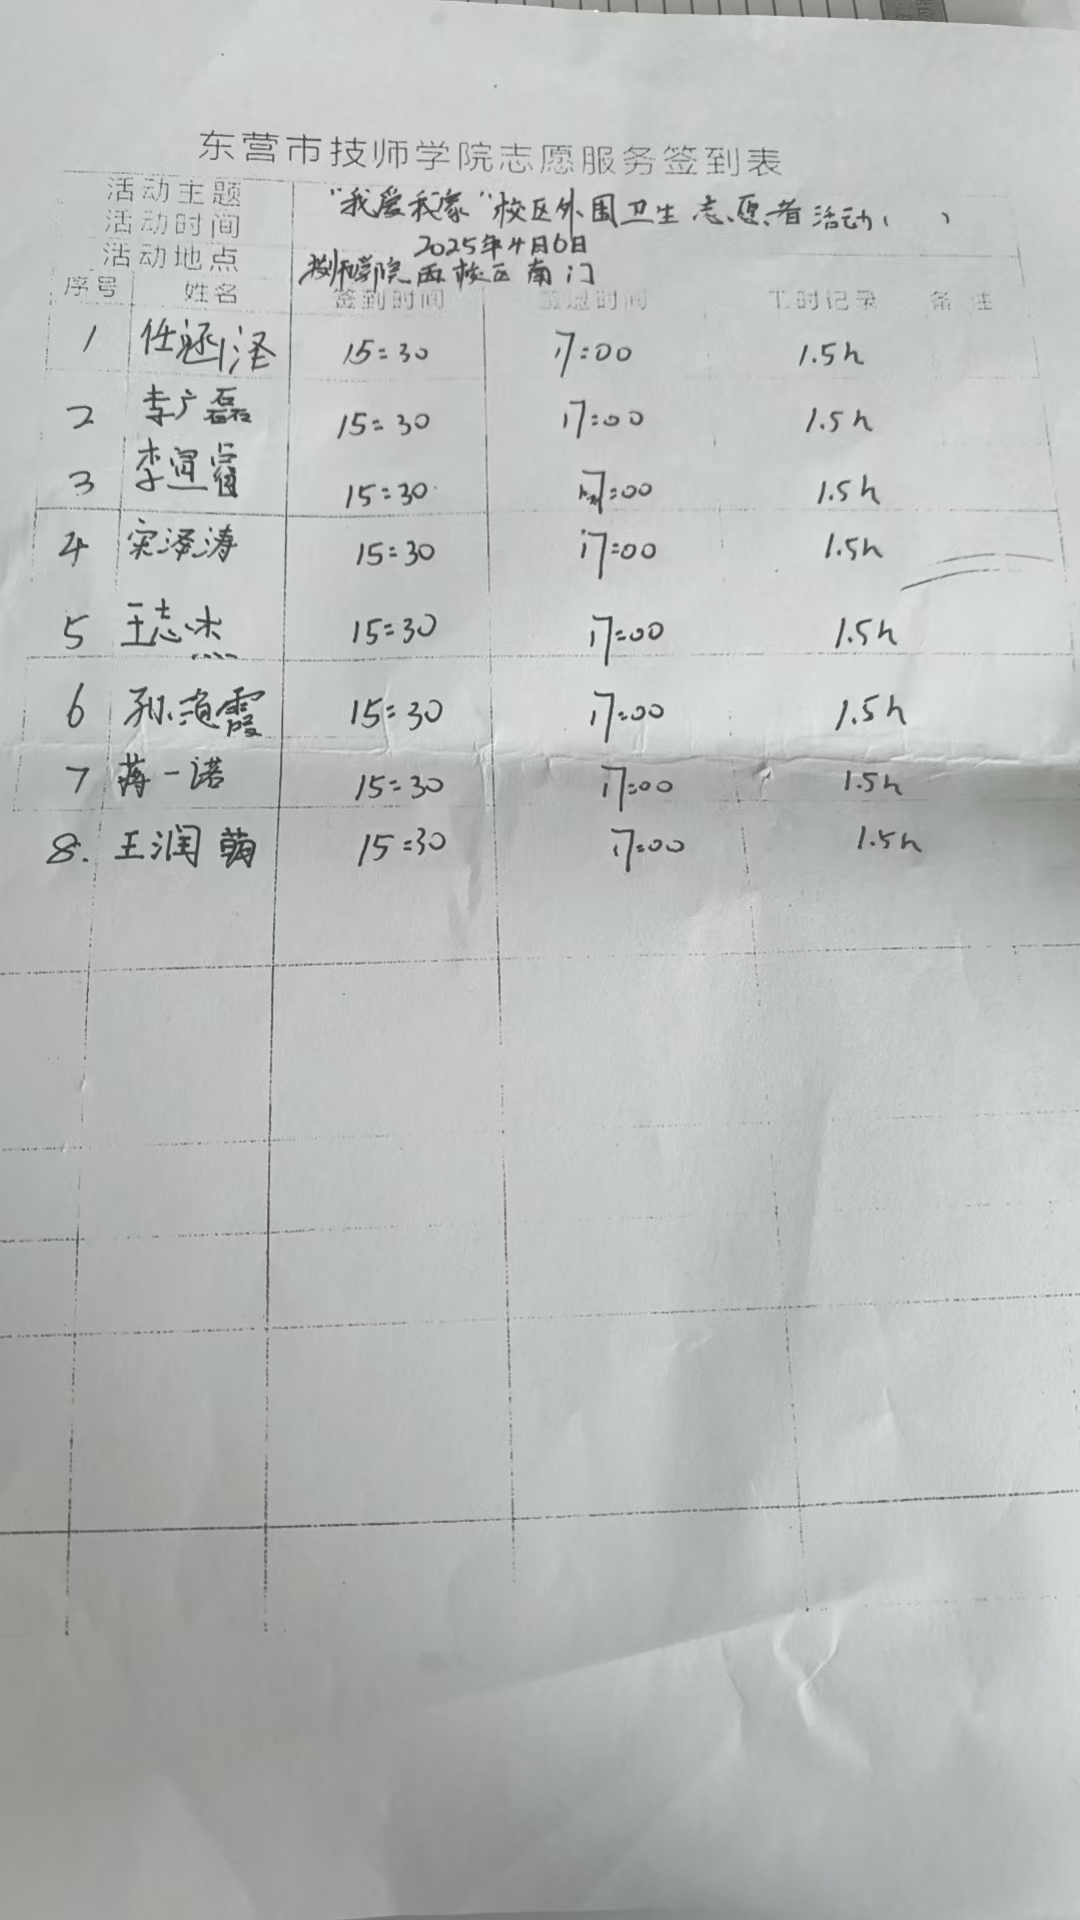 东营市技师学院志愿服务签到表
活动主题 "我爱我家"校区外围卫生志愿者活动( )
活动时间 2025年4月6日
活动地点 技师学院西校区南门
序号 姓名 签到时间 签退时间 工时记录 备注
1 任涵泽 15:30 17:00 1.5h
2 李广磊 15:30 17:00 1.5h
3 李 15:30 17:00 1.5h
4 宋泽涛 15:30 17:00 1.5h
5 王志杰 15:30 17:00 1.5h
6 孙 霞 15:30 17:00 1.5h
7 蒋一诺 15:30 17:00 1.5h
8. 王润萌 15:30 17:00 1.5h